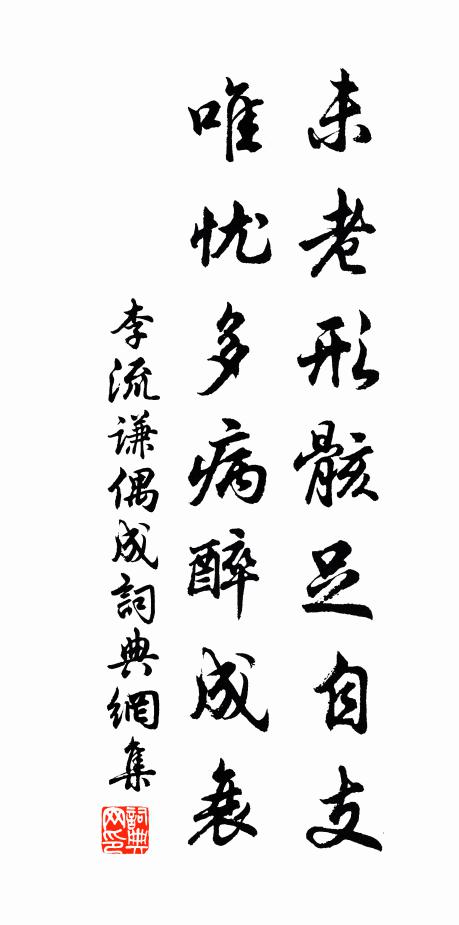 未老形骸足自支
唯忧多病醉成衰
李流谦偶成詞典網集
詞典网印